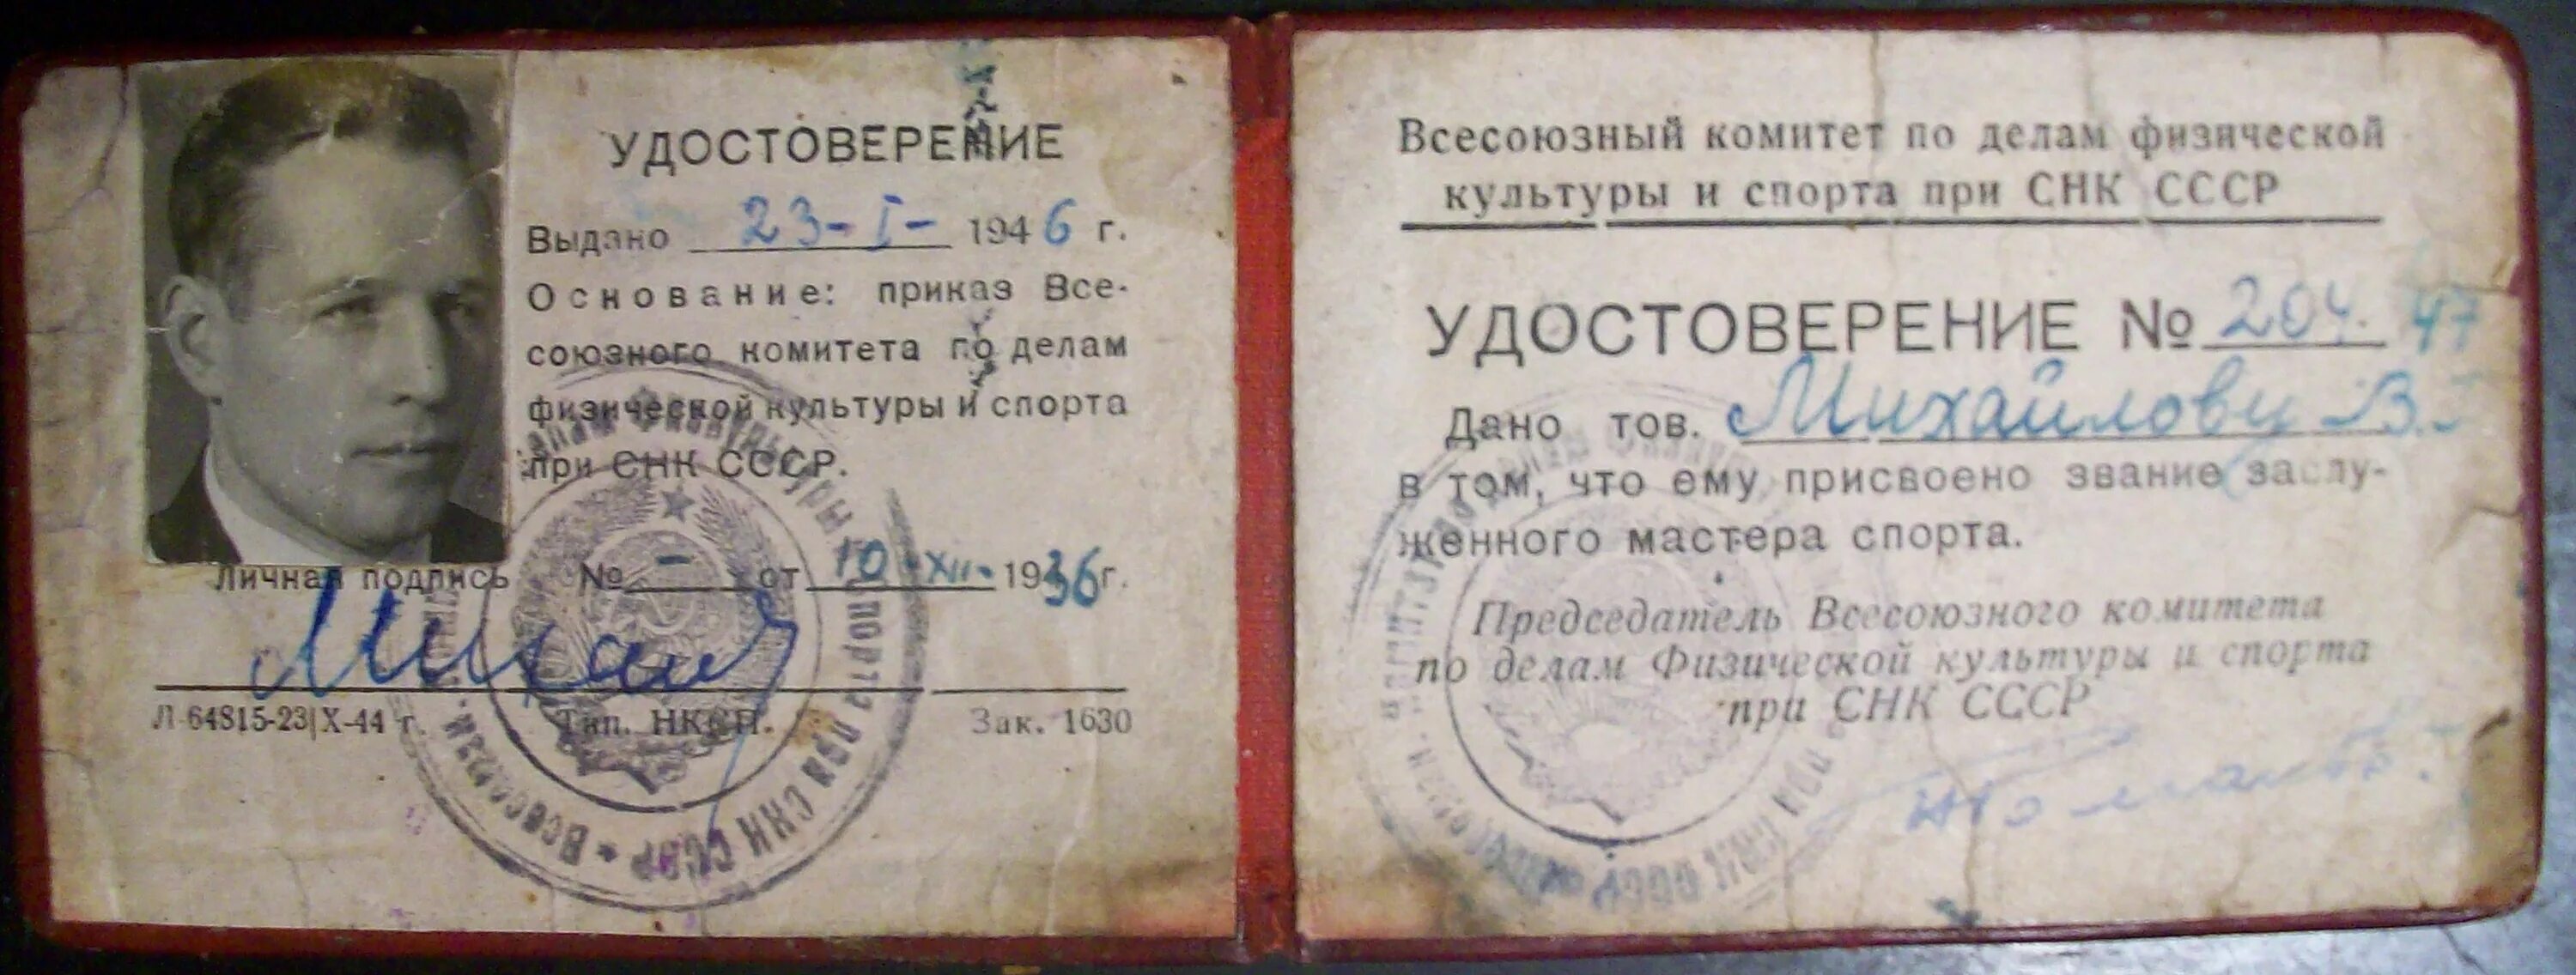 УДОСТОВЕРЕНИЕ
Выдано 23-I- 1946 г.
Основание: приказ Все-
союзного комитета по делам
физической культуры и спорта
при СНК СССР.
Личная подпись № - от 10-XII-1936г.
Л-64815-23|X-44 г. Тип. Зак. 1630
Всесоюзный комитет по делам физической
культуры и спорта при СНК СССР
УДОСТОВЕРЕНИЕ № 204. 47
Дано тов. Михайлову В.
в том, что ему присвоено звание заслу-
женного мастера спорта.
Председатель Всесоюзного комитета
по делам Физической культуры и спорта
при СНК СССР